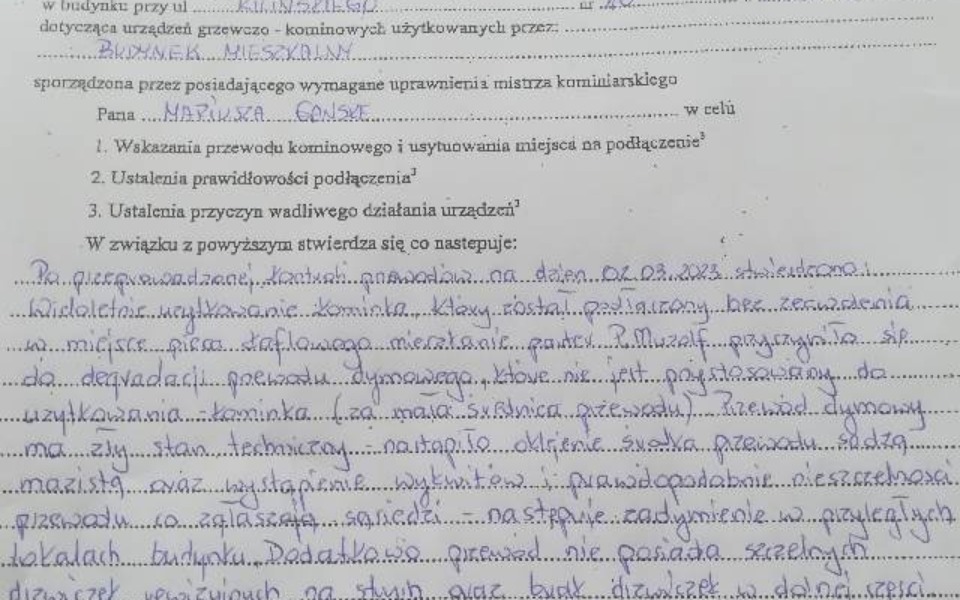 w budynku przy ul ..... KILIŃSKIEGO ..... nr 40
dotycząca urządzeń grzewczo - kominowych użytkowanych przez:
BUDYNEK MIESZKALNY
sporządzona przez posiadającego wymagane uprawnienia mistrza kominiarskiego
Pana .... MARIUSZA GAŃSKE ..... w celu
1. Wskazania przewodu kominowego i usytuowania miejsca na podłączenie³
2. Ustalenia prawidłowości podłączenia³
3. Ustalenia przyczyn wadliwego działania urządzeń³
W związku z powyższym stwierdza się co nastepuje:
Po przeprowadzonej kontroli przewodów na dzień 02.03.2023 stwierdzono:
Wieloletnie użytkowanie kominka, który został podłączony bez zezwolenia
w miejsce pieca kaflowego mieszkanie parter P. przyczyniło się
do degradacji przewodu dymowego, które nie jest przystosowany do
użytkowania kominka (za mała średnica przewodu). Przewód dymowy
ma zły stan techniczny - nastąpiło oklejenie środka przewodu sadzą
mazistą oraz wystąpienie wykwitów i prawdopodobnie nieszczelności
przewodu co zgłaszają sąsiedzi - następuje zadymienie w przyległych
lokalach budynku. Dodatkowo przewód nie posiada szczelnych
drzwiczek rewizyjnych na strych oraz brak drzwiczek w dolnej części